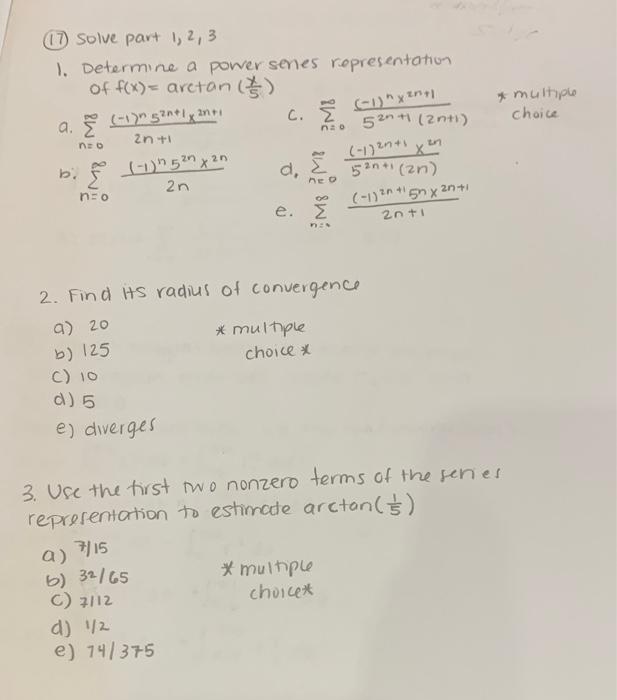 (17) Solve part 1, 2, 3
1. Determine a power series representation
of f(x) = arctan (x/5)
a. ∞ Σ n=0 (-1)^n 5^{2n+1} x^{2n+1} / 2n+1
b. ∞ Σ n=0 (-1)^n 5^{2n} x^{2n} / 2n
c. ∞ Σ n=0 (-1)^n x^{2n+1} / 5^{2n+1} (2n+1)
d. ∞ Σ n=0 (-1)^{2n+1} x^{2n} / 5^{2n+1} (2n)
e. ∞ Σ n=0 (-1)^{2n+1} 5n x^{2n+1} / 2n+1
* multiple
choice
2. Find its radius of convergence
a) 20
b) 125
c) 10
d) 5
e) diverges
* multiple
choice *
3. Use the first two nonzero terms of the series
representation to estimate arctan(1/5)
a) 7/15
b) 32/65
c) 7/12
d) 1/2
e) 74/375
* multiple
choice*